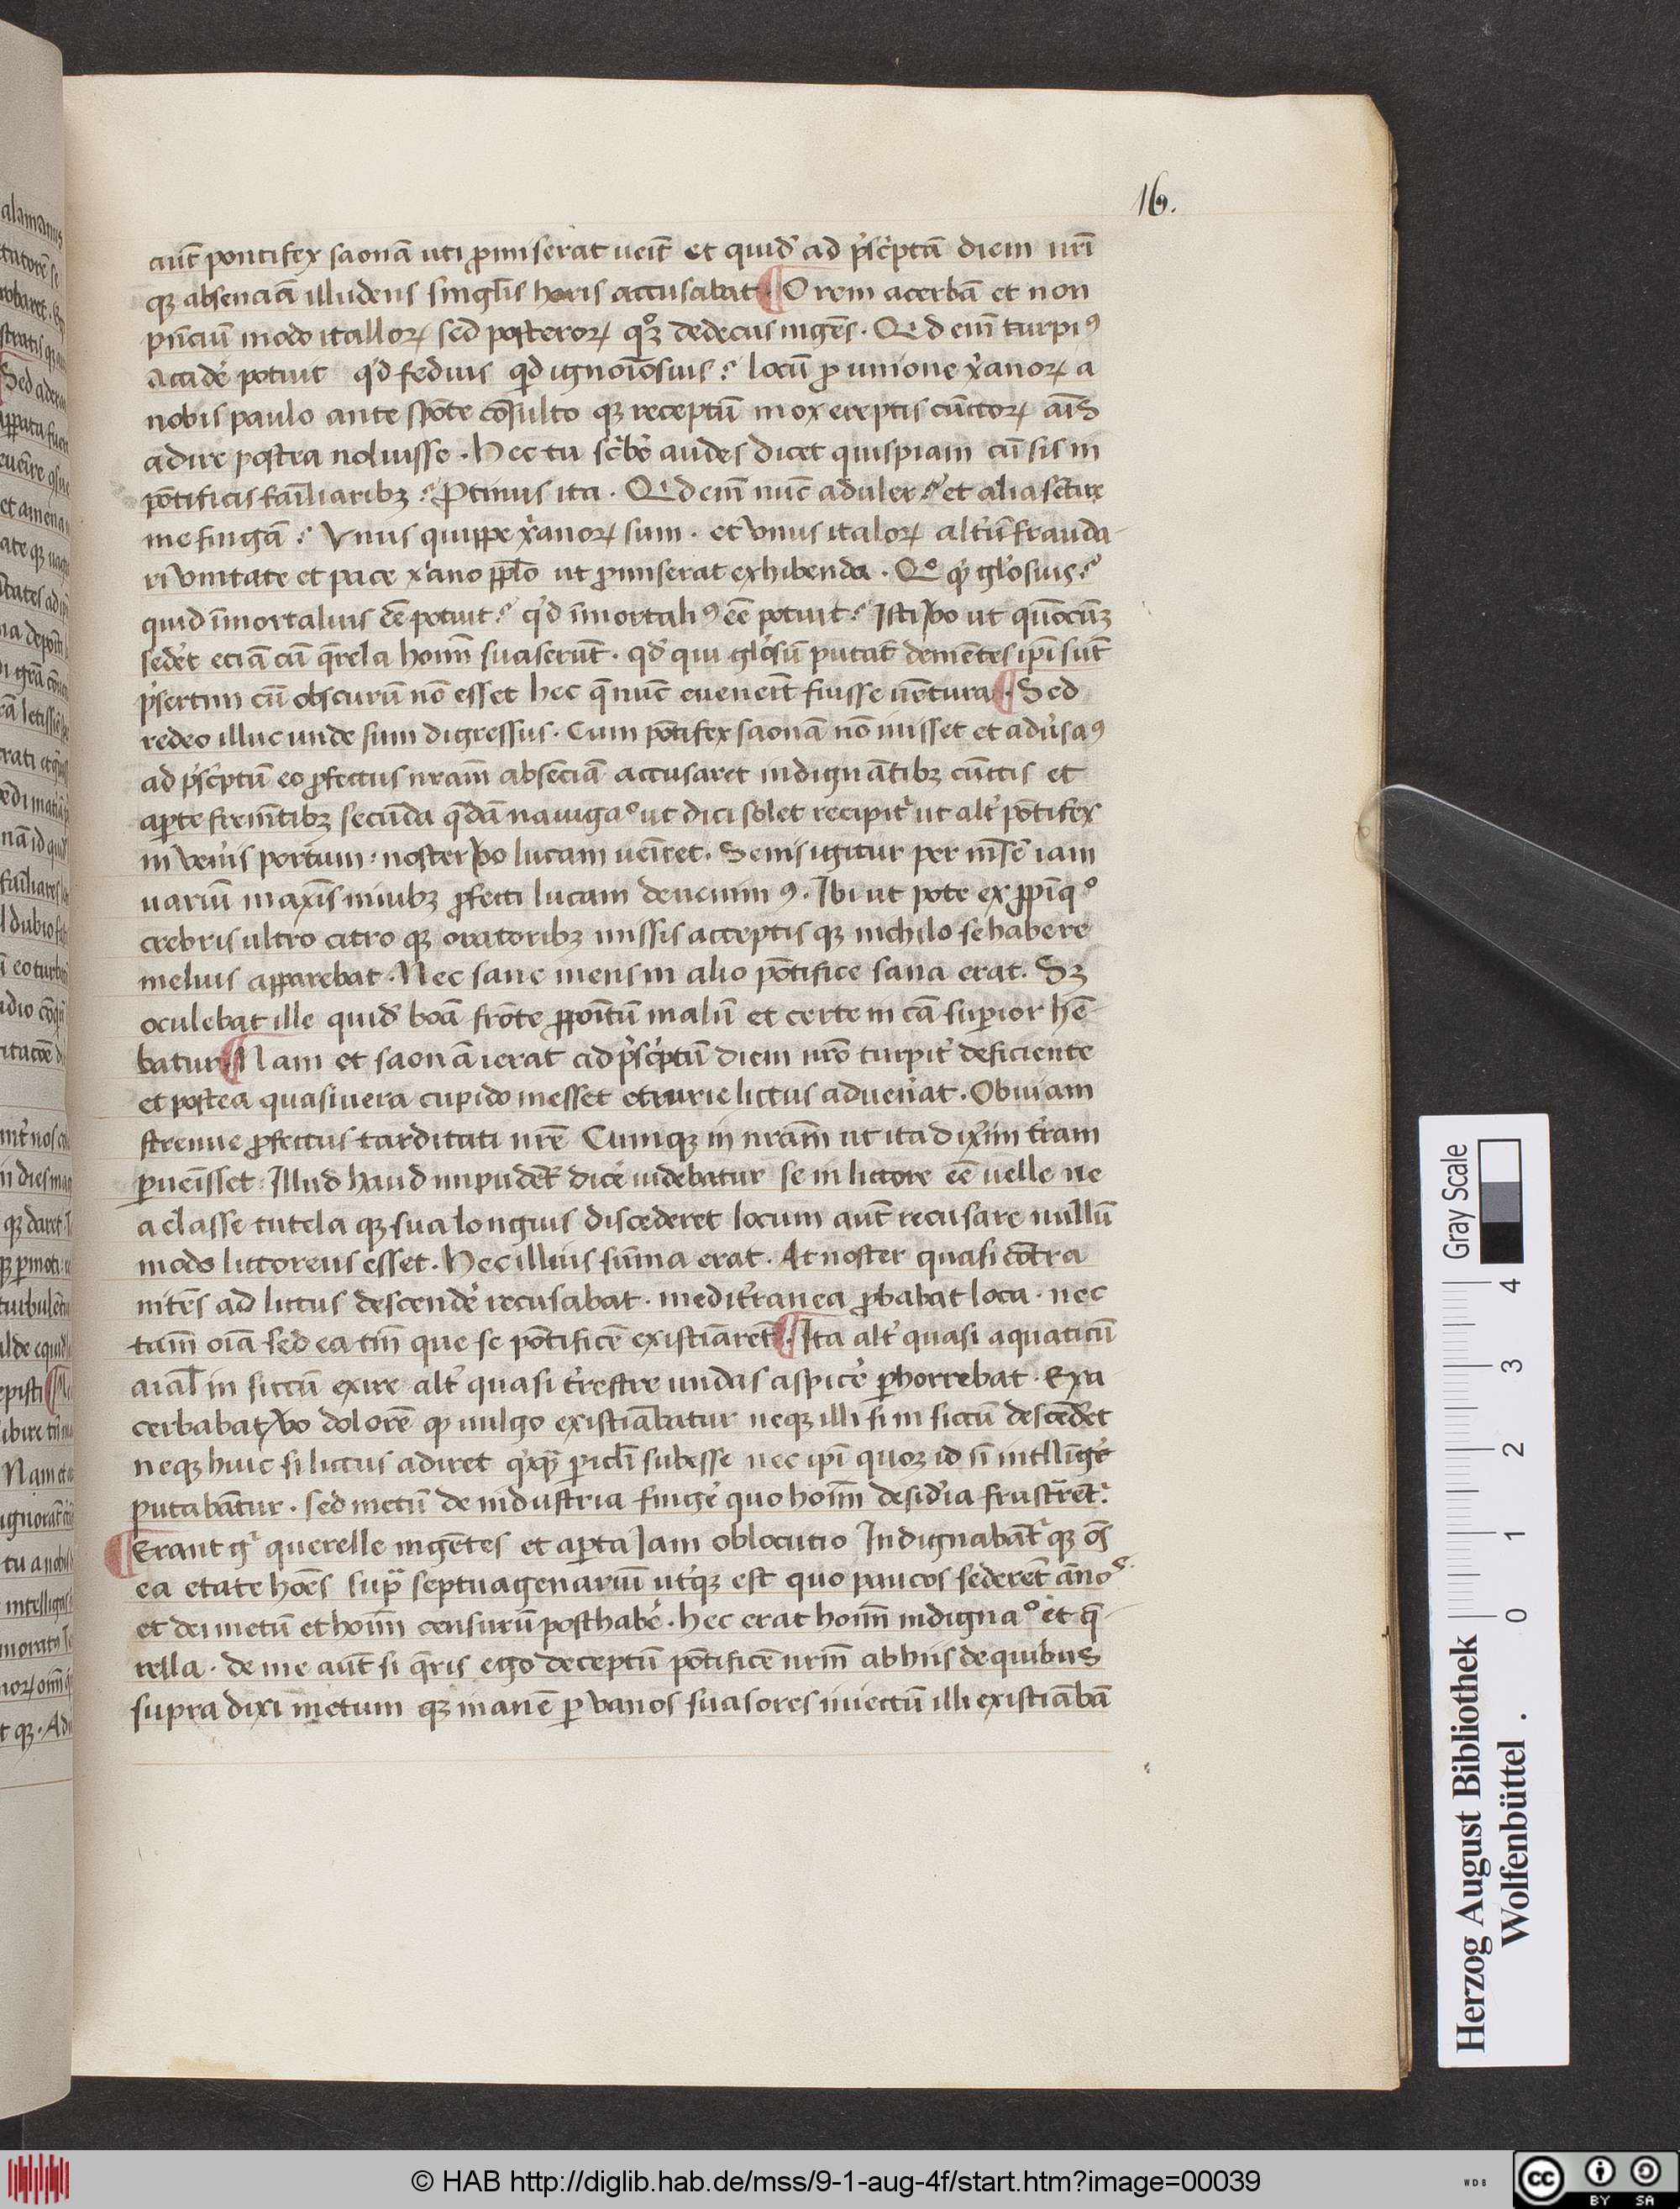 16.
aut̄ pontifex saonā uti ꝓmiserat ueit̄ et quid̄ ad p̄sc̓ptā diem nr̄i
qꝫ absenciā illudens singl̄is horis accusabat · O rem acerbā et non
pn̄cium modo itallorꝝ sed posterorꝝ qꝫ dedecus ingēs · Qd em̄ turpiꝰ
accide̓ potuit q̓d fedius qd ignoīosius? locū ꝓ unione x̓anorꝝ a
nobis paulo ante spōte cōsulto qꝫ receptū mox ereptis cūctorꝝ aīs
adire postea noluisse · Hec tu sc̓be̓ audes dicet quispiam cū sis in
pōtificis familiaribꝫ? Ꝓtinus ita · Qd em̄ nūc aduler? et alia sētire
me fingā? Vnus quippe x̓anorꝝ sum · et vnus italorꝝ alt̓ū frauda
ri vnitate et pace x̓ano pp̄lo ut ꝓmiserat exhibenda · Qº glo̓sius?
quid īmortalius ēē potuit? q̓d īmortaliꝰ ēē potuit? Isti v̓o ut quōcūꝫ
sede̓t eciā cū q̄rela hom̄ suaserūt · qd̓ qui glo̓sū putāt demētes ip̄i sūt
p̓sertim cū obscurū nō esset hec q̄ nūc euenerīt fuisse uētura · Sed
redeo illuc unde sum digressus · Cum pōtifex saonā nō iuisset et adu̓saꝰ
ad p̓sc̓ptū eo ꝓfectus nr̄am absēciā accusaret indignātibꝫ cūctis et
aꝑte frem̄tibꝫ secūda q̄dā nauigaº ut dici solet recipit̓ ut alt̓ pōtifex
in ven̓is portum · noster v̓o lucam uēiret · Semis igitur per mēsē iam
uariū maxīs niuibꝫ ꝓfecti lucam deuenimꝰ · Ibi ut pote ex ꝓpīqº
crebris ultro citro qꝫ oratoribꝫ missis acceptis qꝫ nichilo se habere
melius apparebat · Nec sane mens in alio pōtifice sana erat · Sꝫ
oculebat ille quid̄ boā frōte ꝓpoītū malū et certe in cā suꝑior hē
batur · Nam et saonā ierat ad p̓sc̓ptū diem nr̄o turpit̓ deficiente
et postea quasi uera cupido inesset etrurie littus aduen̓at · Obuiam
strenue ꝓfectus tarditati nr̄e Cumqꝫ in nr̄am ut ita dixīm t̓ram
ꝑueīsset · Illud haud impudēt̓ dice̓ uidebatur se in littore ēē uelle ne
a classe tutela qꝫ sua longius discederet locum aut̄ recusare nullū
modo littoreus esset · Hec illius sūma erat · At noster quasi cōtra
nitēs ad littus descende̓ recusabat · medit̓ranea ꝓbabat loca · nec
tam̄ oīa sed ea tm̄ que se pōtificē existīarēt · Ita alt̓ quasi aquaticū
aīal in siccū exire alt̓ quasi t̓restre undas aspice̓ ꝑhorrebat · Exa
cerbabat v̓o dolorē ꝙ uulgo existīabatur neqꝫ illi si in siccū descēdēt
neqꝫ huic si littus adiret q̓cꝙ̄ ꝑicl̄i subesse nec ip̄i quoꝫ id sī intllīge̓
putabātur · sed metū de industria finge̓ quo hom̄ desid̓ia frustrēt̓.
Erant gͥ querelle ingētes et aꝑta Iam oblocutio Indignabāt̓ qꝫ oēs
ea etate hoēs supᵃ septuagenariū ut̓qꝫ est quo paucos sederēt ānos
et dei metū et hom̄ censurū posthabe̓ · hec erat hom̄ indignaº et q̄
rella · de me aut̄ si q̄ris ego deceptū pōtificē nrm̄ ab hiis de quibus
supra dixi metum qꝫ inanē ꝑ vanos suasores iniectū illi existīabā
Gray Scale
0 1 2 3 4
Herzog August Bibliothek
Wolfenbüttel .
© HAB http://diglib.hab.de/mss/9-1-aug-4f/start.htm?image=00039
WDB
cc BY SA